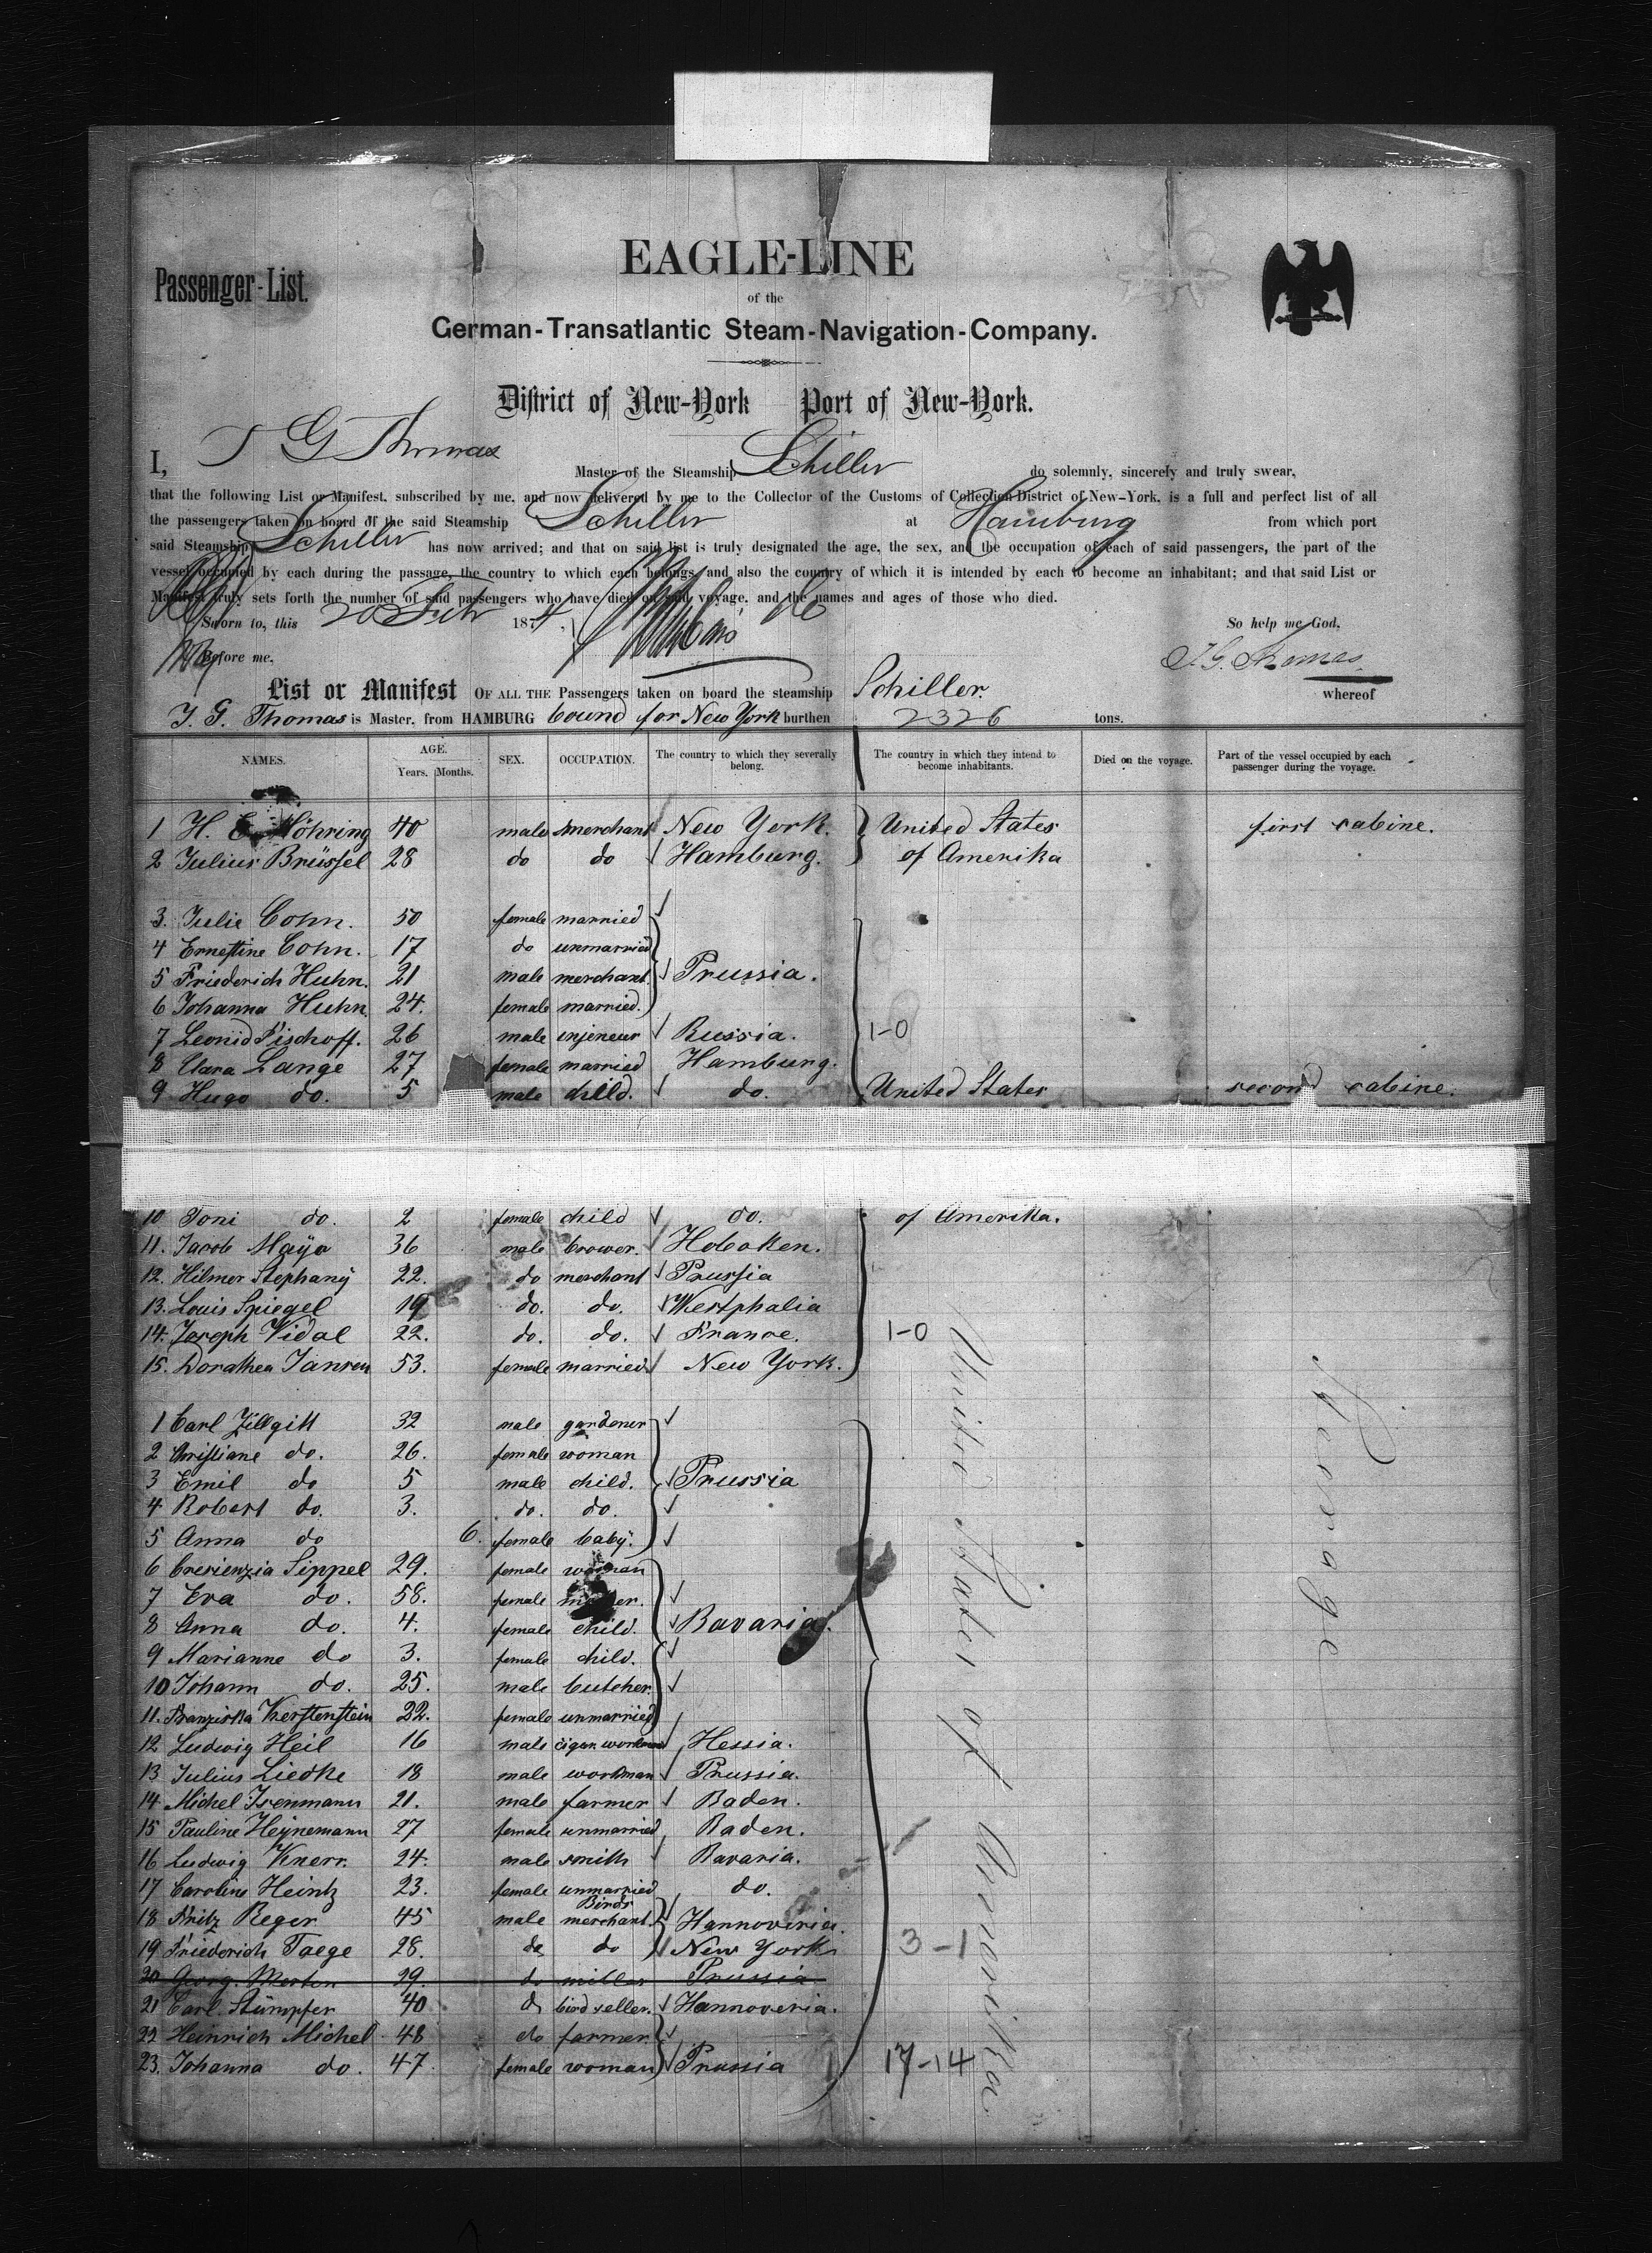 Passenger-List.
EAGLE-LINE
of the
German-Transatlantic Steam-Navigation-Company.
District of New-York Port of New-York.
I, J G Thomas Master of the Steamship Schiller do solemnly, sincerely and truly swear,
that the following List or Manifest, subscribed by me, and now delivered by me to the Collector of the Customs of Collection District of New-York, is a full and perfect list of all
the passengers taken on board of the said Steamship Schiller at Hamburg from which port
said Steamship Schiller has now arrived; and that on said list is truly designated the age, the sex, and the occupation of each of said passengers, the part of the
vessel occupied by each during the passage, the country to which each belongs, and also the country of which it is intended by each to become an inhabitant; and that said List or
Manifest truly sets forth the number of said passengers who have died on said voyage, and the names and ages of those who died.
Sworn to, this 20 Febr 1874. So help me God,
Before me, J. G. Thomas
List or Manifest OF ALL THE Passengers taken on board the steamship Schiller. whereof
J. G. Thomas is Master, from HAMBURG bound for New York burthen 2326 tons.
NAMES. AGE. Years. Months. SEX. OCCUPATION. The country to which they severally belong. The country in which they intend to become inhabitants. Died on the voyage. Part of the vessel occupied by each passenger during the voyage.
1 H. Möhring 40 male merchant New York. United States first cabine.
2 Julius Brüssel 28 do do Hamburg. of Amerika
3. Julie Cohn. 50 female married
4 Ernestine Cohn. 17 do unmarried
5 Friederich Huhn. 21 male merchant. Prussia.
6 Johanna Huhn. 24. female married.
7 Leonid Fischoff. 26 male injeneur Russia. 1-0
8 Clara Lange 27 female married Hamburg.
9 Hugo do. 5 male child. do. United States second cabine.
10 Toni do. 2 female child do. of Amerika.
11. Jacob Maÿo 36 male brower. Hoboken.
12. Hilmer Stephanÿ 22. do merchant Prussia
13. Louis Spiegel 19 do. do. Westphalia
14. Joseph Vidal 22. do. do. France. 1-0
15. Dorathea Jansen 53. female married New York.
1 Carl Zillgitt 32 male gardener
2 Christiane do. 26. female woman
3 Emil do 5 male child. Prussia
4 Robert do. 3. do. do.
5 Anna do 6. female babÿ.
6 Crescenzia Sippel 29. female woman
7 Eva do. 58. female
8 Anna do. 4. female child. Bavaria.
9 Marianne do 3. female child.
10 Johann do. 25. male butcher.
11. Franziska Kerstenstein 22. female unmarried
12 Ludwig Heil 16 male cigar workman Hessia.
13 Julius Liedke 18 male workman Prussia.
14. Michel Isenmann 21. male farmer Baden.
15 Pauline Heÿnemann 27 female unmarried Baden.
16 Ludwig Knerr. 24. male smith Bavaria.
17 Caroline Heintz 23. female unmarried do.
18 Fritz Reger 45 male Birds merchant. Hannoveria.
19 Friederich Taege 28. do do New York 3-1
20 Georg. Merten 29. do miller Prussia
21 Carl Stümpfer 40 do bird seller. Hannoveria.
22 Heinrich Michel 48 do farmer.
23. Johanna do. 47. female woman Prussia 17-14
United States of Amerika
Steerage